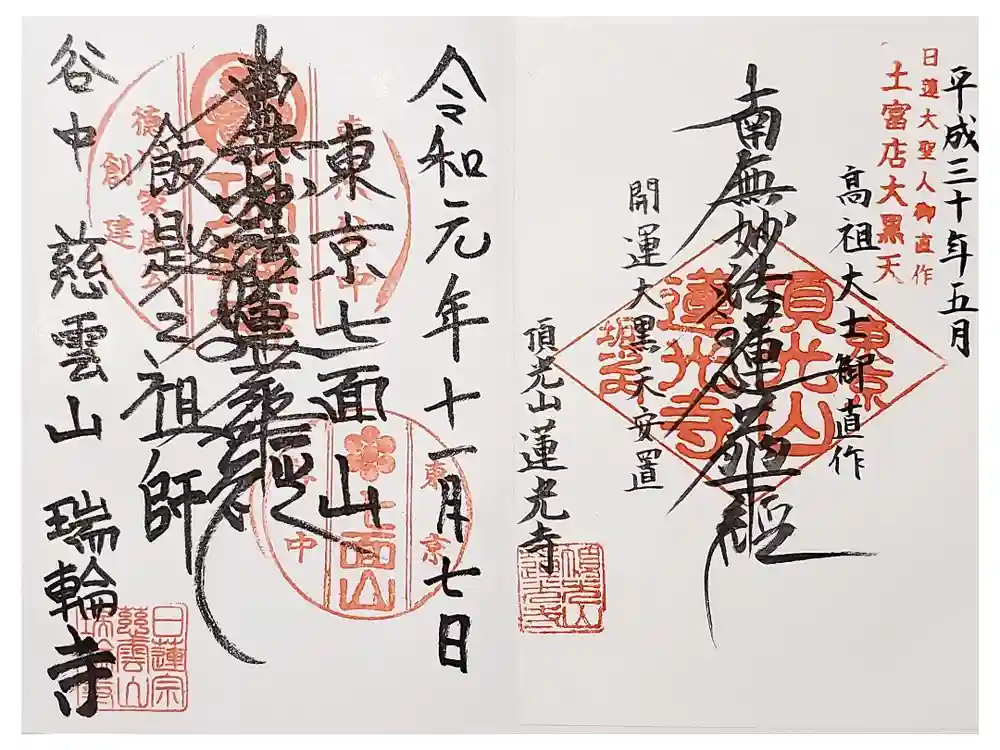 平成三十年五月
日蓮大聖人御直作
土富店大黒天
高祖大士御直作
南無妙法蓮華経
開運大黒天安置
頂光山蓮光寺
東京
頂光山
蓮光寺
頂光山
蓮光寺
令和元年十一月七日
東京七面山
南無妙法蓮華経
飯匙之祖師
谷中 慈雲山 瑞輪寺
創建
東京
七面山
日蓮宗
慈雲山
瑞輪寺